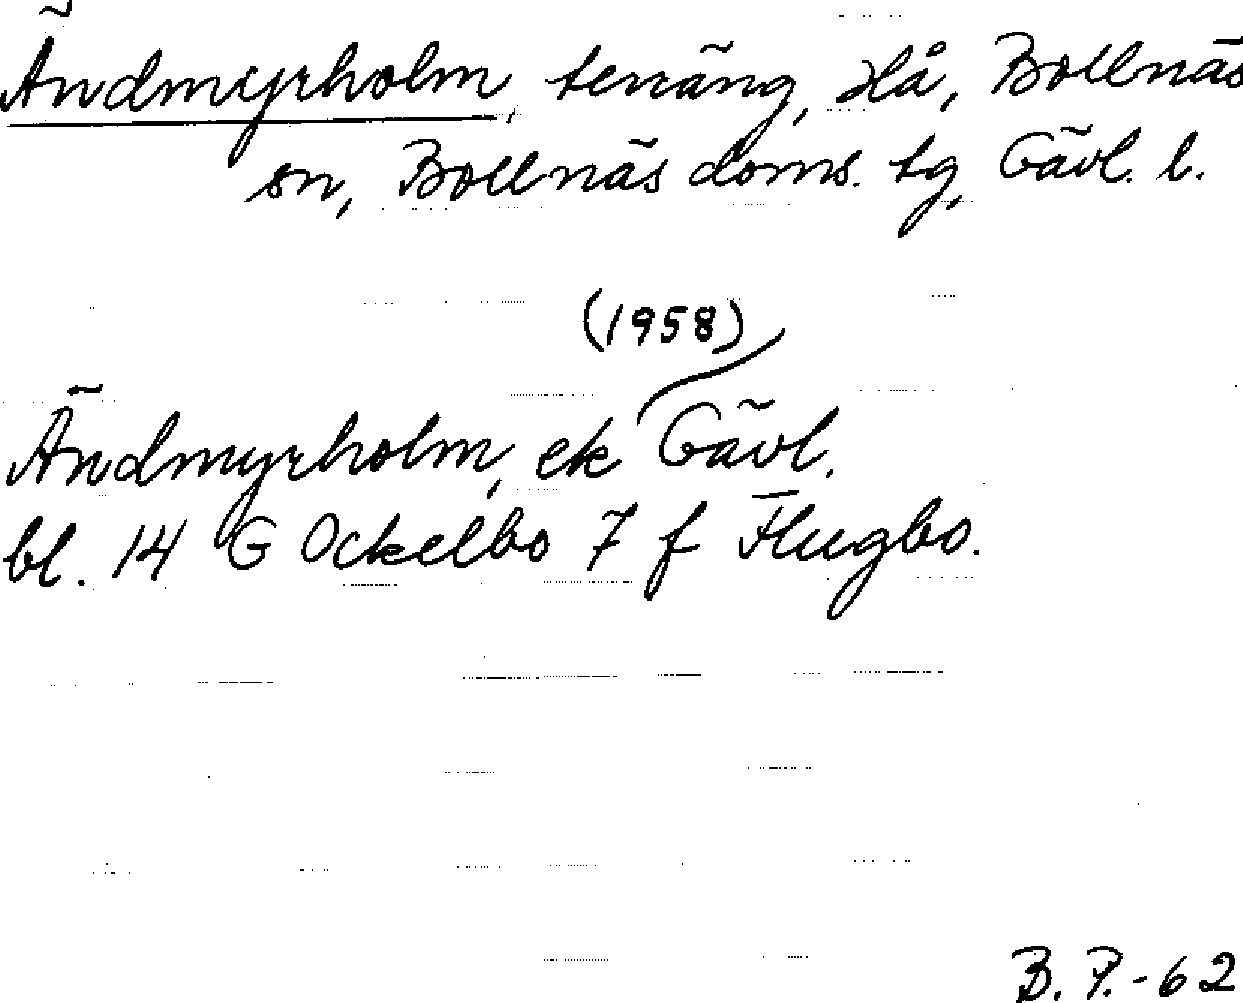 Ändmyrholm, terräng, Hå, Bollnäs
sn, Bollnäs doms. tg, Gävl. l.
(1958)
Ändmyrholm, ek Gävl.
bl. 14 G Ockelbo 7 f Flugbo.
B. P.-62